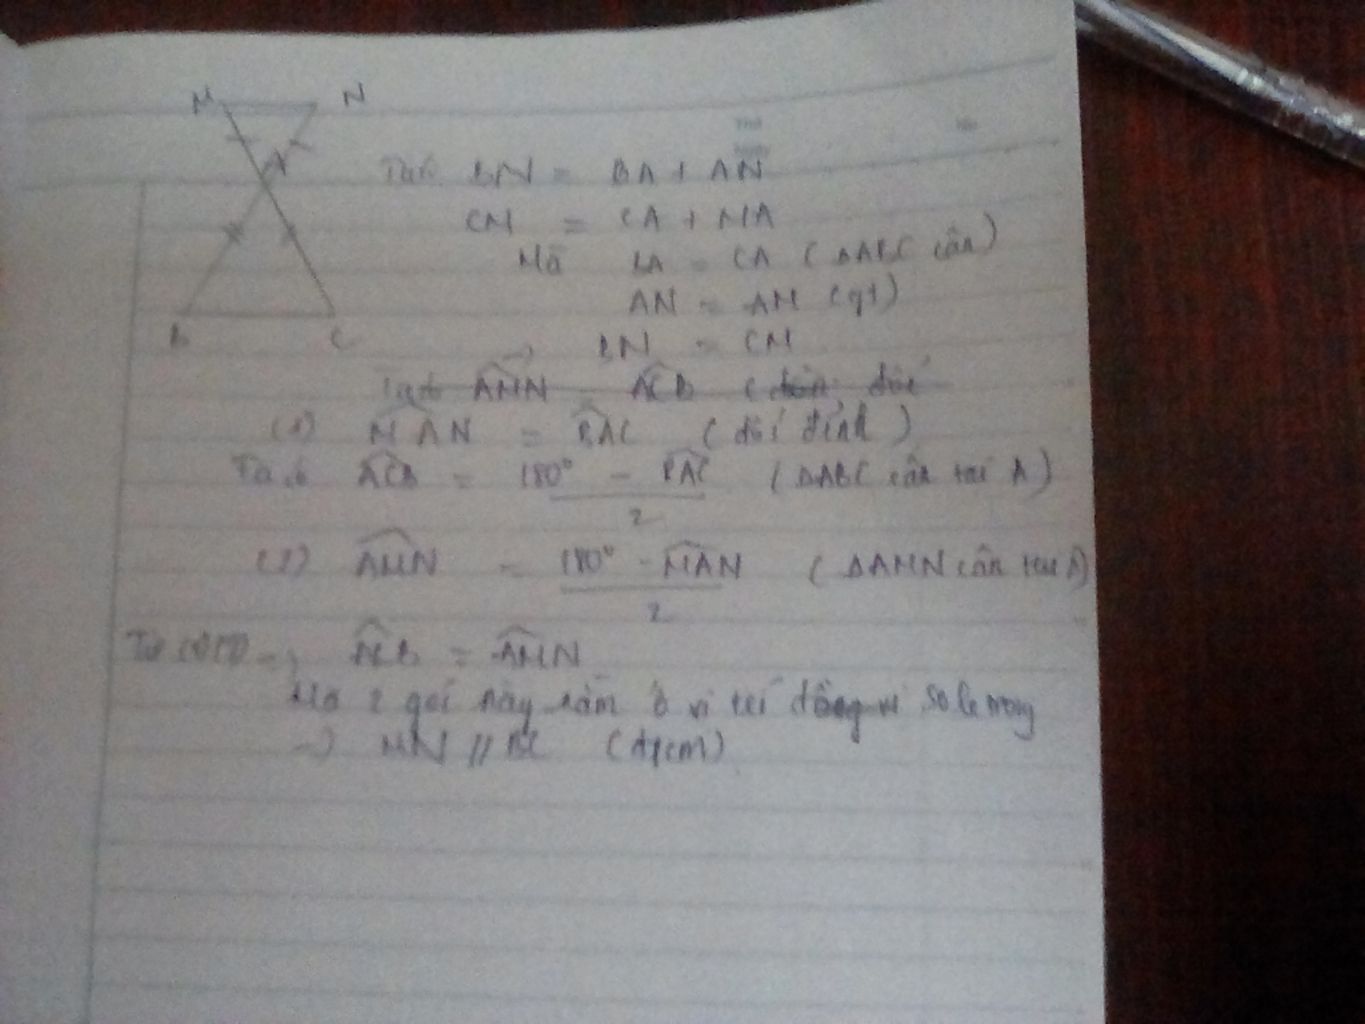 M N
A
B C
Ta có BN = BA + AN
CM = CA + MA
Mà BA = CA (ΔABC cân)
AN = AM (gt)
→ BN = CM
Ta có AMN = ACB (
(1) MAN = BAC (đối đỉnh)
Ta có ACB = 180° - BAC / 2 (ΔABC cân tại A)
(2) AMN = 180° - MAN / 2 (ΔAMN cân tại A)
Từ → ACB = AMN
Mà 2 góc này nằm ở vị trí đồng vị so le trong
→ MN // BC (đpcm)